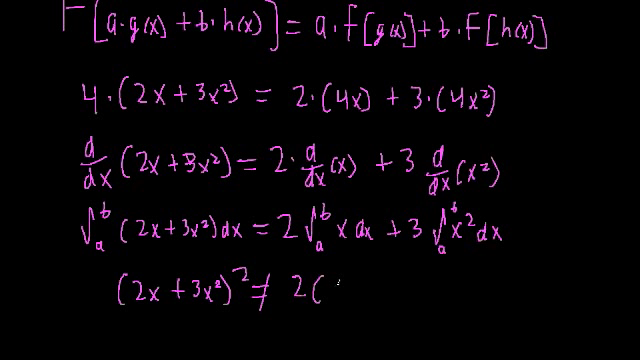 F[a·g(x) + b·h(x)] = a·f[g(x)] + b·F[h(x)]
4·(2x + 3x²) = 2·(4x) + 3·(4x²)
d/dx (2x + 3x²) = 2· d/dx (x) + 3 d/dx (x²)
∫ₐᵇ (2x + 3x²) dx = 2 ∫ₐᵇ x dx + 3 ∫ₐᵇ x² dx
(2x + 3x²)² ≠ 2(